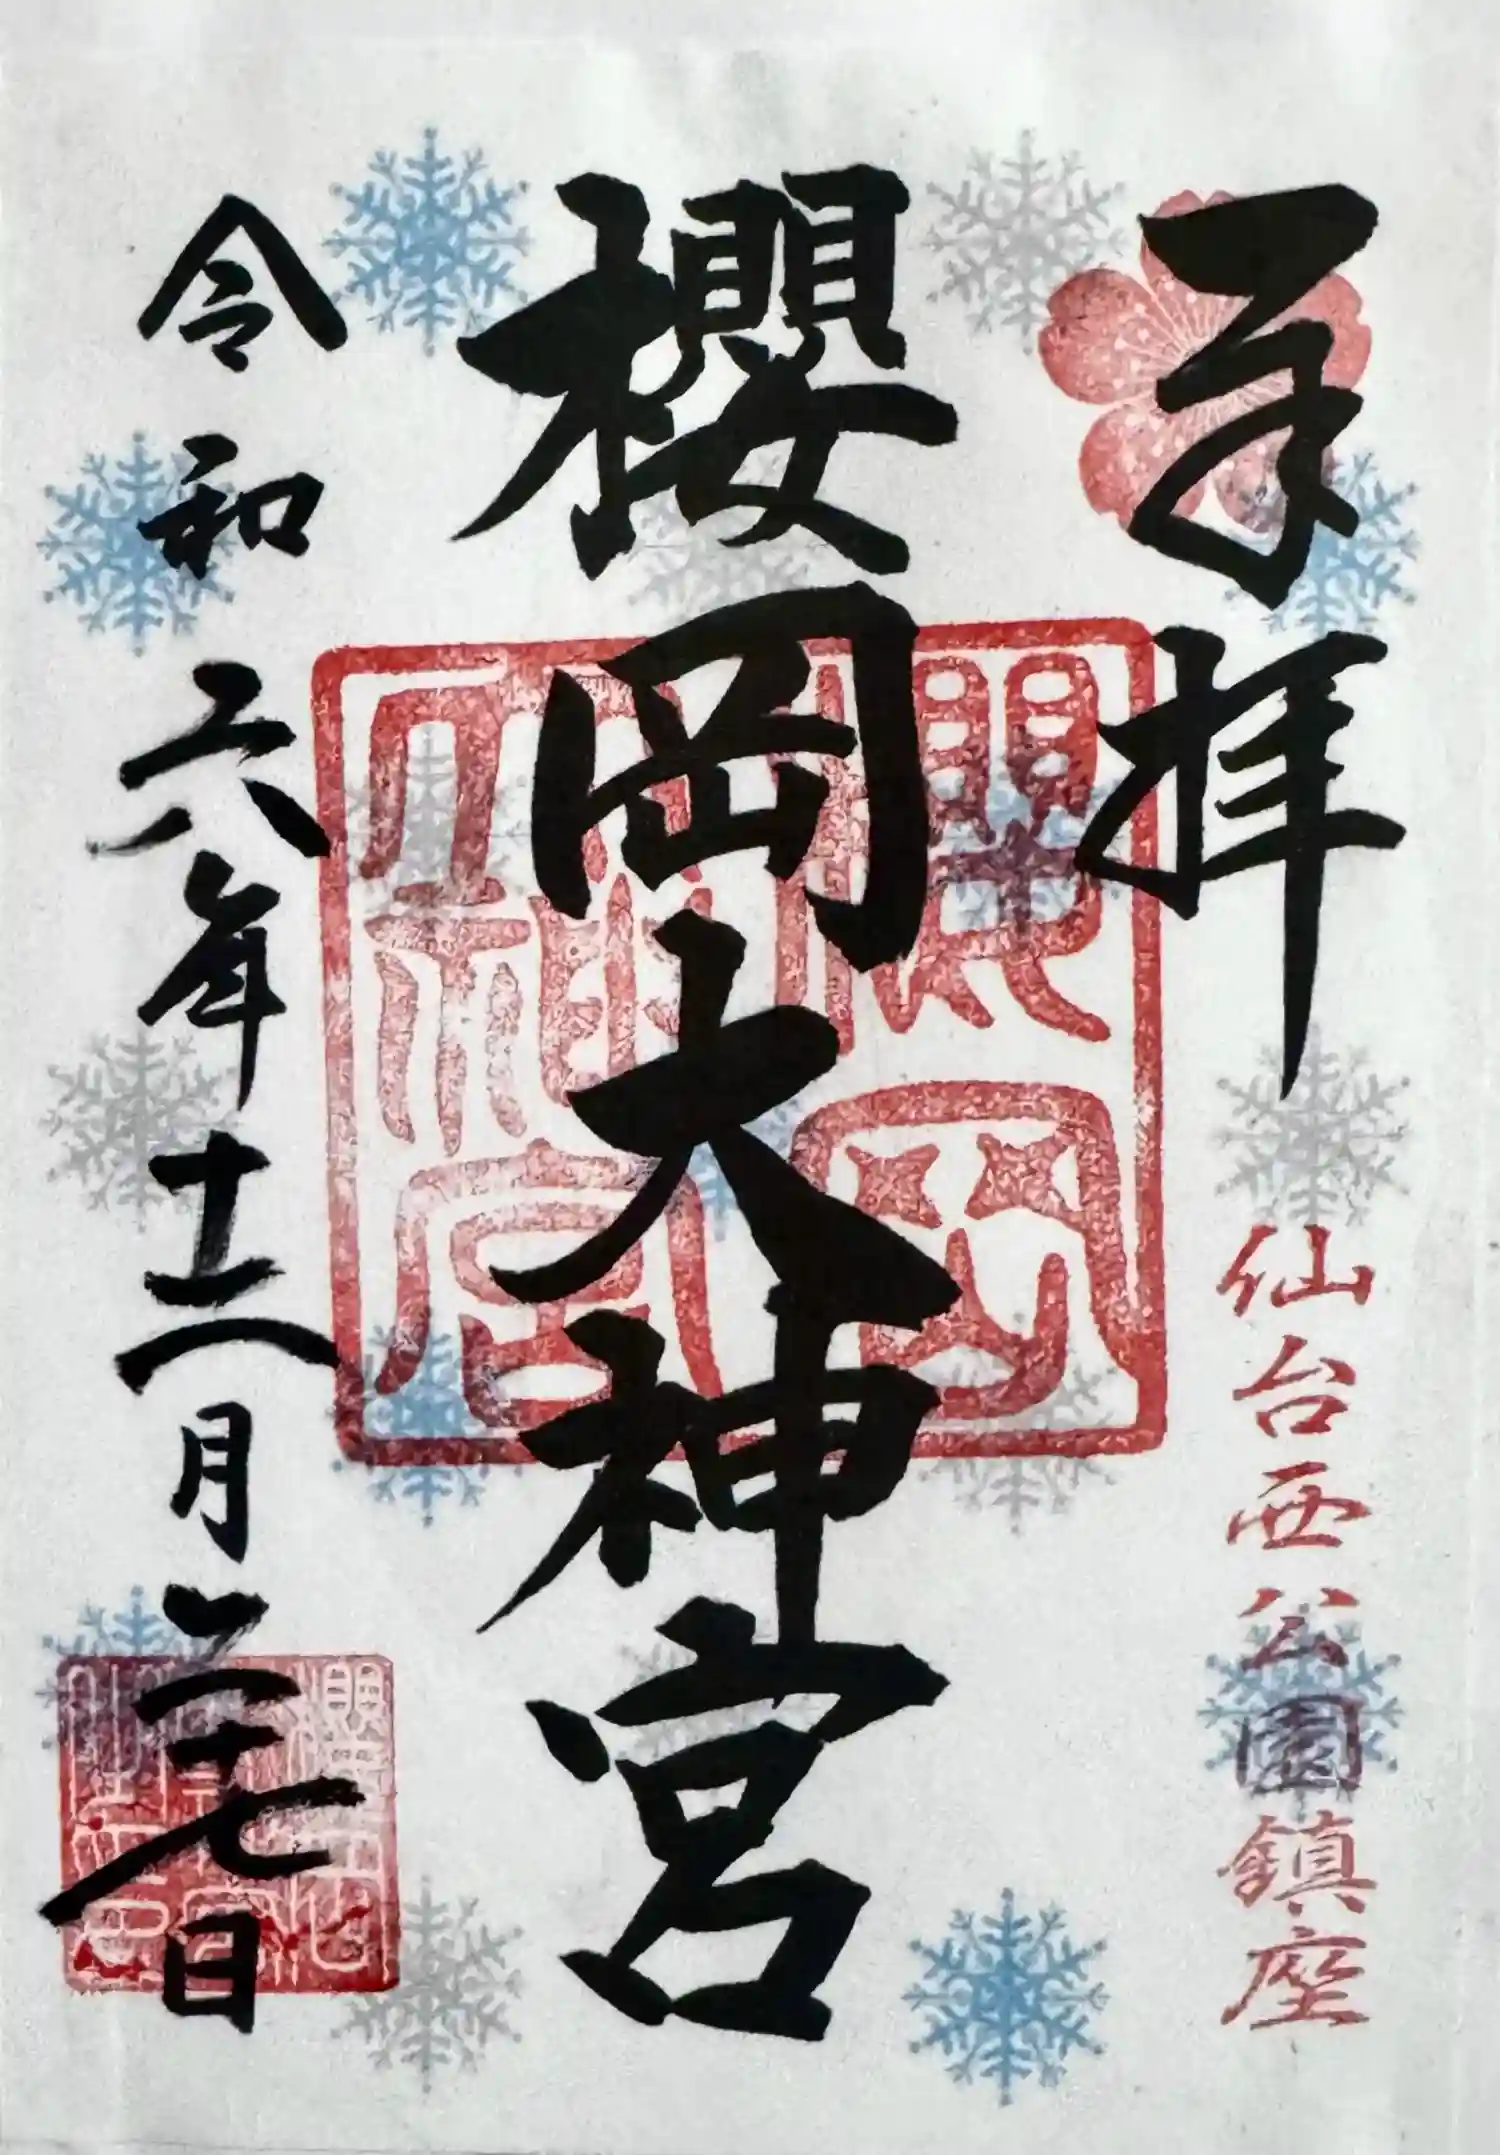 奉拝
仙台西公園鎮座
櫻岡大神宮
櫻岡
大神宮
令和六年十二月二十七日